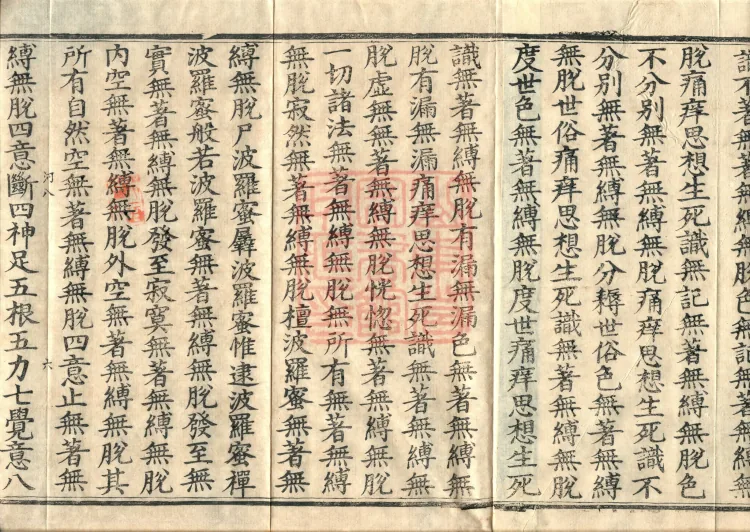 脫痛痒思想生死識無記無著無縛無脫色
不分別無著無縛無脫痛痒思想生死識不
分別無著無縛無脫分耨世俗色無著無縛
無脫世俗痛痒思想生死識無著無縛無脫
度世色無著無縛無脫度世痛痒思想生死
識無著無縛無脫有漏無漏色無著無縛無
脫有漏無漏痛痒思想生死識無著無縛無
脫虛無無著無縛無脫恍惚無著無縛無脫
一切諸法無著無縛無脫無所有無著無縛
無脫寂然無著無縛無脫檀波羅蜜無著無
縛無脫尸波羅蜜羼波羅蜜惟逮波羅蜜禪
波羅蜜般若波羅蜜無著無縛無脫發至無
實無著無縛無脫發至寂寞無著無縛無脫
內空無著無縛無脫外空無著無縛無脫其
所有自然空無著無縛無脫四意止無著無
河八 六
縛無脫四意斷四神足五根五力七覺意八